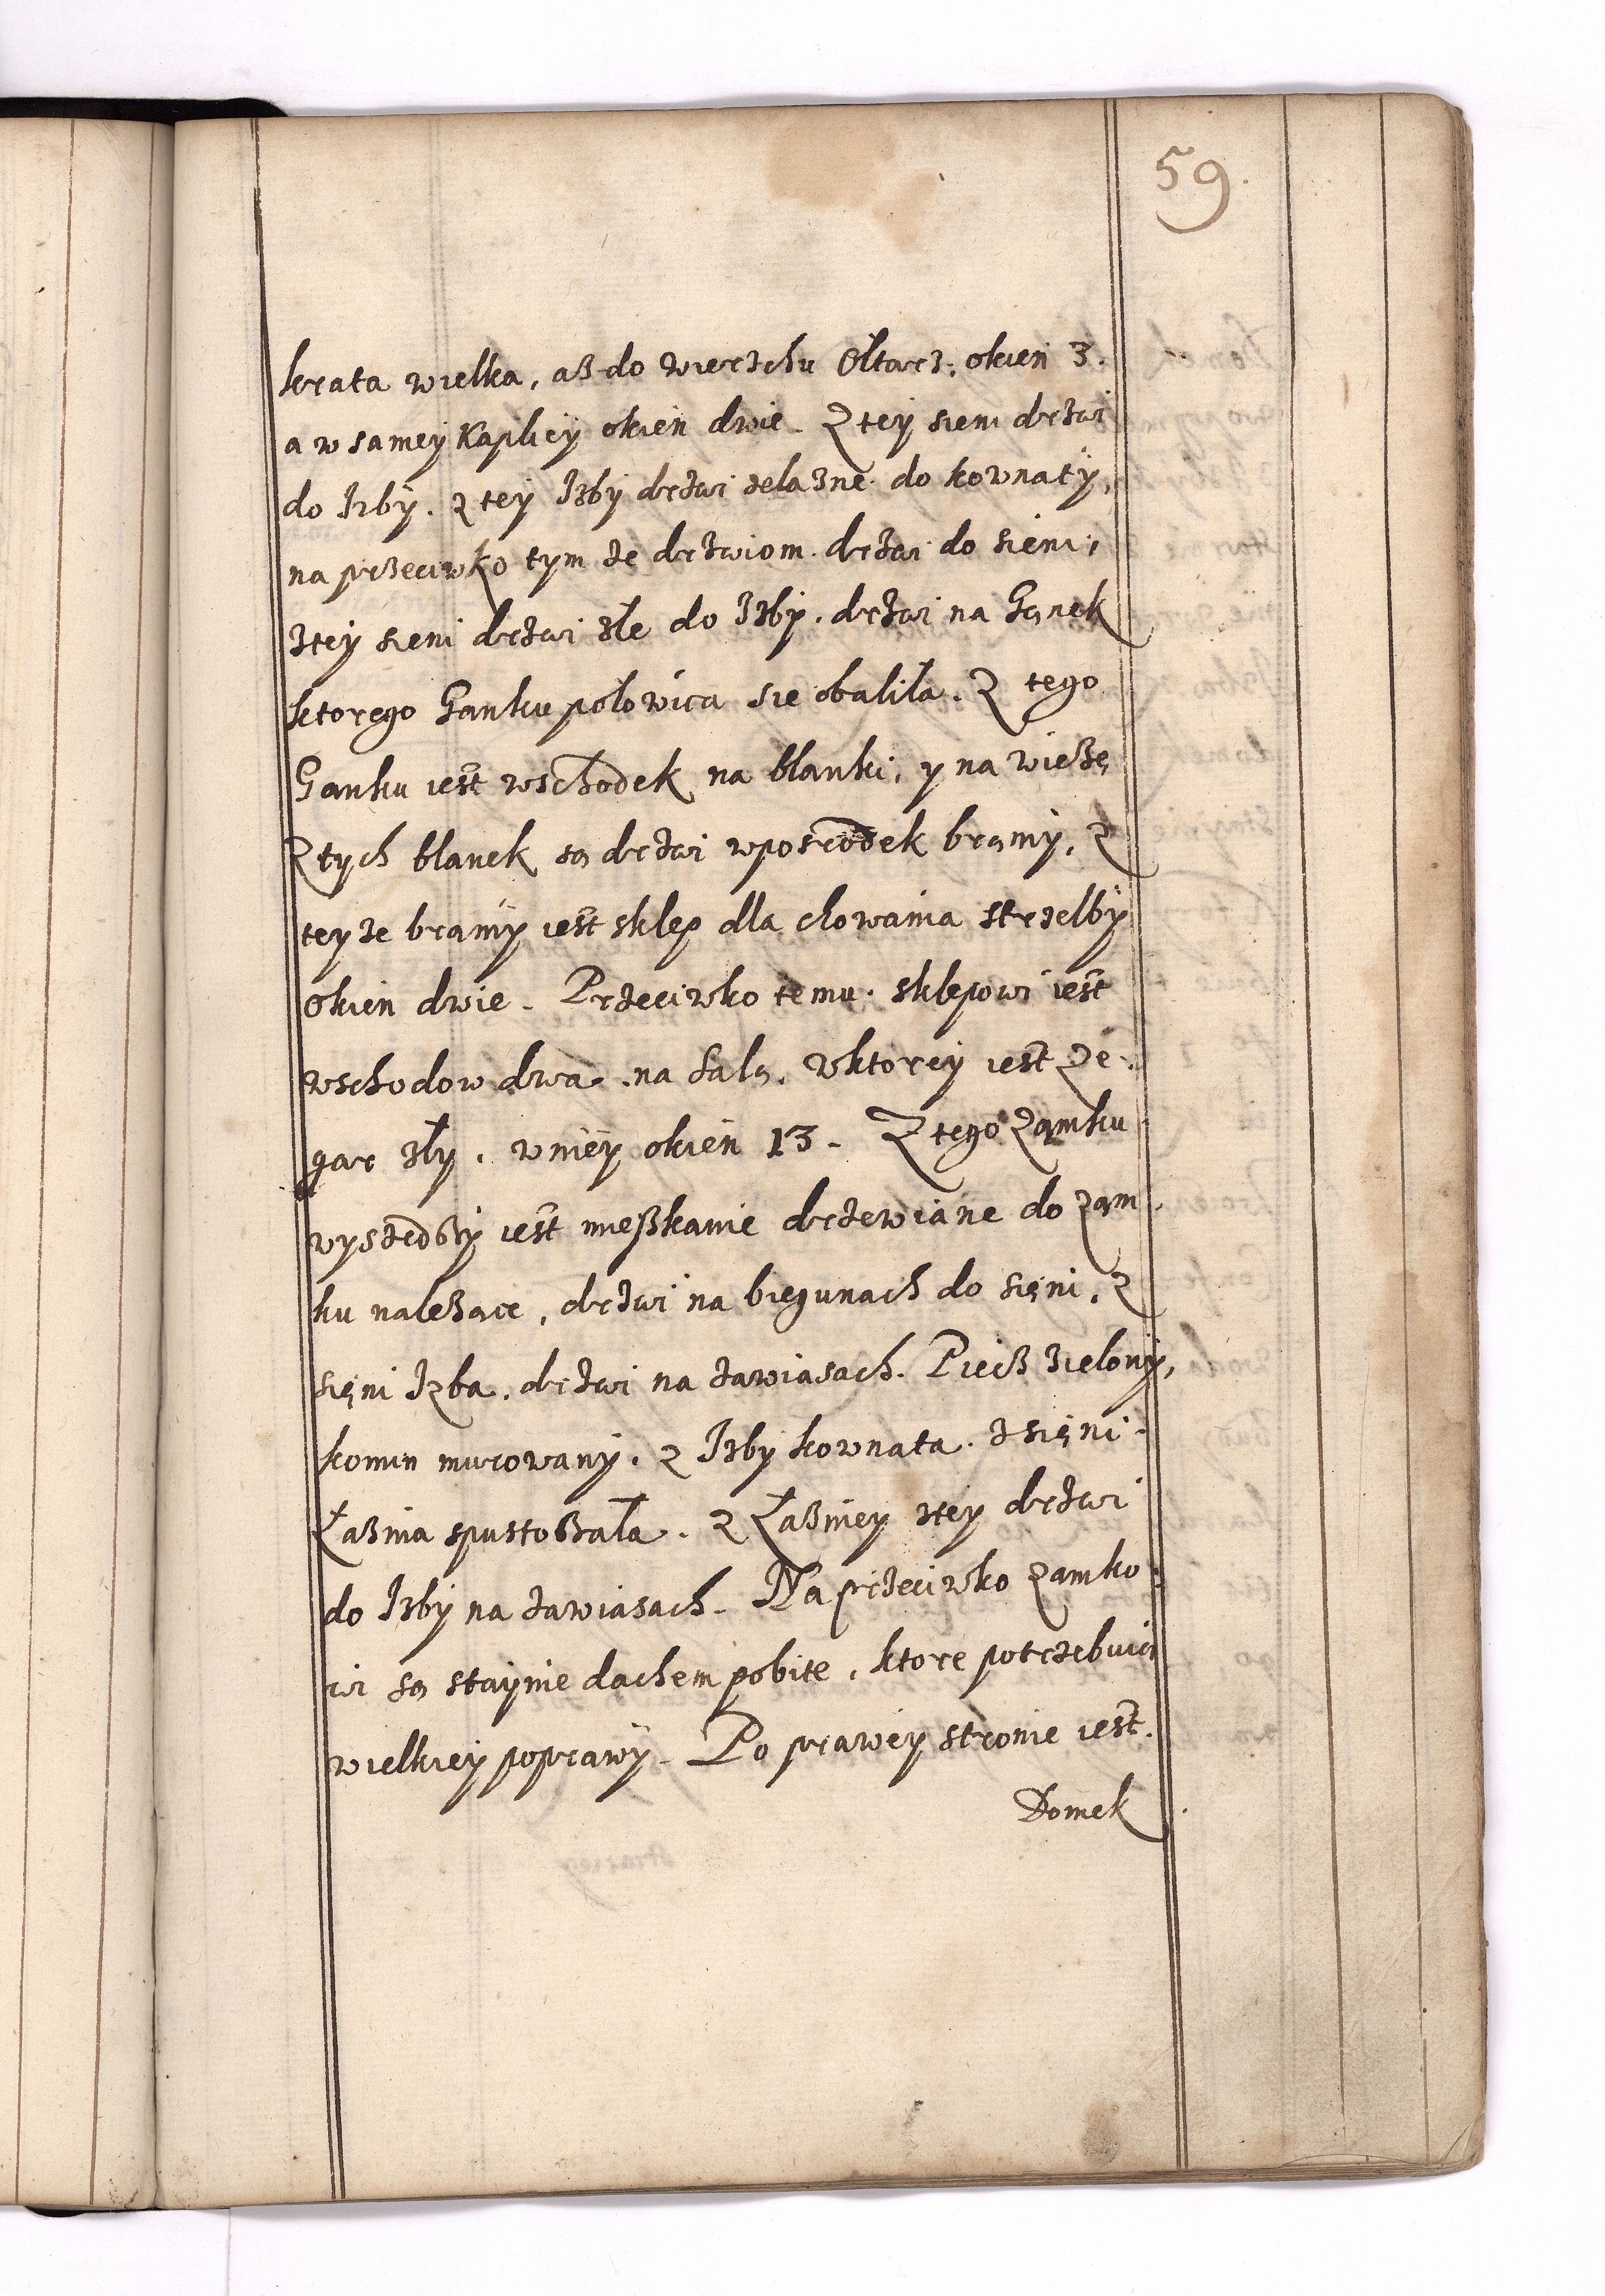 59.
krata wielka, aß do wierzchu Ołtarz, okien 3.
a w samey Kaplicy okien dwie. Z tey sieni drzwi
do Izby. z tey Izby drzwi zelazne do kownaty,
na przeciwko tym ze drzwiom. drzwi do sieni,
z tey sieni drzwi złe do Izby. drzwi na Ganek
ktorego Ganku połowica sie obaliła. Z tego
Ganku iest wschodek na blanki, y na wießę
Z tych blanek są drzwi wposrodek bramy, z
tey ze bramy iest sklep dla chowania strzelby
okien dwie. Przeciwko temu sklepowi iest
wschodow dwa na salą, wktorey iest Ze:
gar zły, wniey okien 13. Z tego Zamku
wyszedßy iest mießkanie drzewiane do Zam
ku naleßące, drzwi na biegunach do sięni, z
sięni Izba, drzwi na zawiasach. Piecß zielony,
komin murowany. z Izby kownata. z sięni
Łaßnia spustoßała. z Łaßniey z tey drzwi
do Izby na zawiasach. Na przeciwko Zamko:
wi są staynie dachem pobite, ktore potrzebuią
wielkiey poprawy. Po prawey stronie iest.
Domek